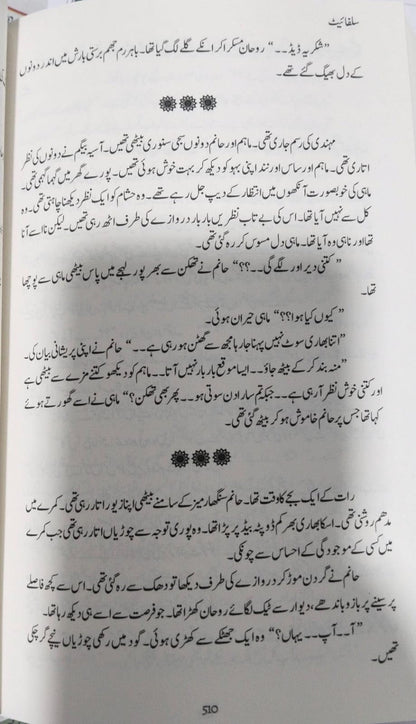 سلفائیٹ
”شکریہ ڈیڈ۔۔“ روحان مسکرا کر انکے گلے لگ گیا تھا۔ باہر رم جھم برستی بارش میں اندر دونوں
کے دل بھیگ گئے تھے۔
مہندی کی رسم جاری تھی۔ ماہم اور حانم دونوں سجی سنوری بیٹھی تھیں۔ آسیہ بیگم نے دونوں کی نظر
اتاری تھی۔ ماہم اور ساس اور نند اپنی بہو کو دیکھ کر بہت خوش ہوئی تھیں۔ پورے گھر میں گہما گہمی تھی۔
ماہی کی خوبصورت آنکھوں میں انتظار کے دیپ جل رہے تھے۔ وہ حشام کو ایک نظر دیکھنا چاہتی تھی۔ وہ
کل سے نہیں آیا تھا۔ اس کی بے تاب نظریں بار بار دروازے کی طرف اٹھ رہی تھیں۔ لیکن نا اسے آنا
تھا اور نا ہی وہ آیا تھا۔ ماہی دل مسوس کر رہ گئی تھی۔
”کتنی دیر اور لگے گی۔۔؟؟“ حانم نے تھکن سے بھرپور لہجے میں پاس بیٹھی ماہی سے پوچھا
تھا۔
”کیوں کیا ہوا؟؟“ ماہی حیران ہوئی۔
”اتنا بھاری سوٹ نہیں پہنا جا رہا مجھ سے گھٹن ہو رہی ہے۔۔“ حانم نے اپنی پریشانی بیان کی۔
”منہ بند کر کے بیٹھ جاؤ۔۔ ایسا موقع بار بار نہیں آتا۔۔ ماہم کو دیکھو کتنے مزے سے بیٹھی ہے
اور کتنی خوش نظر آرہی ہے۔۔ جبکہ تم سارا دن سوتی ہو۔۔ پھر بھی تھکن؟“ ماہی نے اسے گھورتے ہوئے
کہا تھا جس پر حانم خاموش ہو کر بیٹھ گئی تھی۔
رات کے ایک بجے کا وقت تھا۔ حانم سنگھار میز کے سامنے بیٹھی اپنا زیور اتار رہی تھی۔ کمرے میں
مدھم روشنی تھی۔ اسکا بھاری بھر کم ڈوپٹہ بیڈ پر پڑا تھا۔ وہ پوری توجہ سے چوڑیاں اتار رہی تھی جب کمرے
میں کسی کے موجودگی کے احساس سے چونکی۔
حانم نے گردن موڑ کر دروازے کی طرف دیکھا تو دھک سے رہ گئی تھی۔ اس سے کچھ فاصلے
پر سینے پر بازو باندھے، دیوار سے ٹیک لگائے روحان کھڑا تھا۔ جو فرصت سے اسے ہی دیکھ رہا تھا۔
”آ۔۔ آپ۔۔ یہاں؟“ وہ ایک جھٹکے سے کھڑی ہوئی۔ گود میں رکھی چوڑیاں نیچے گر چکی
تھیں۔
510